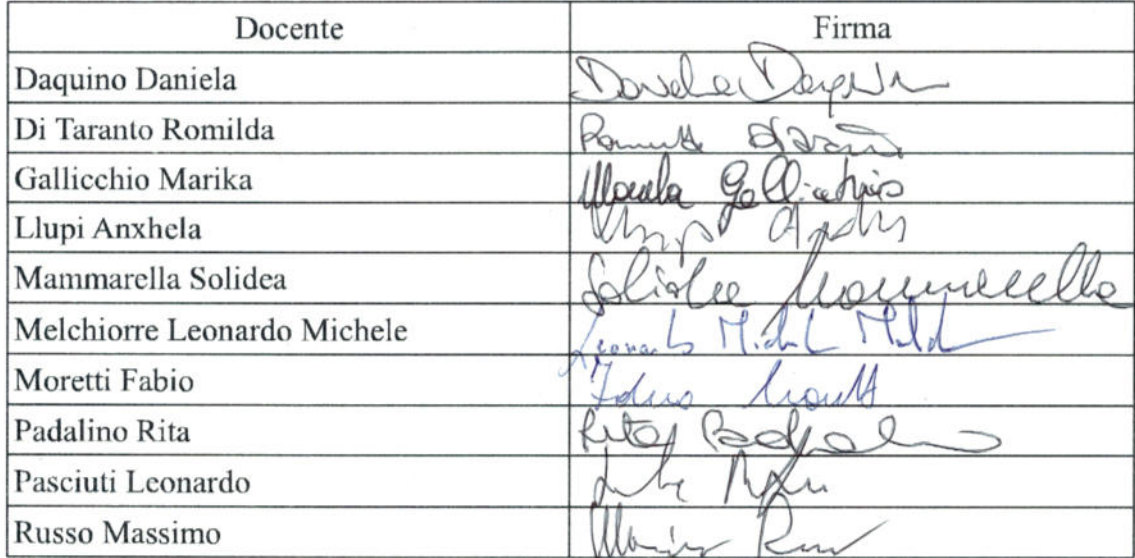 Docente Firma
Daquino Daniela Daniela Daquino
Di Taranto Romilda
Gallicchio Marika Marika Gallicchio
Llupi Anxhela
Mammarella Solidea Solidea Mammarella
Melchiorre Leonardo Michele Leonardo Michele
Moretti Fabio Fabio Moretti
Padalino Rita Rita Padalino
Pasciuti Leonardo
Russo Massimo